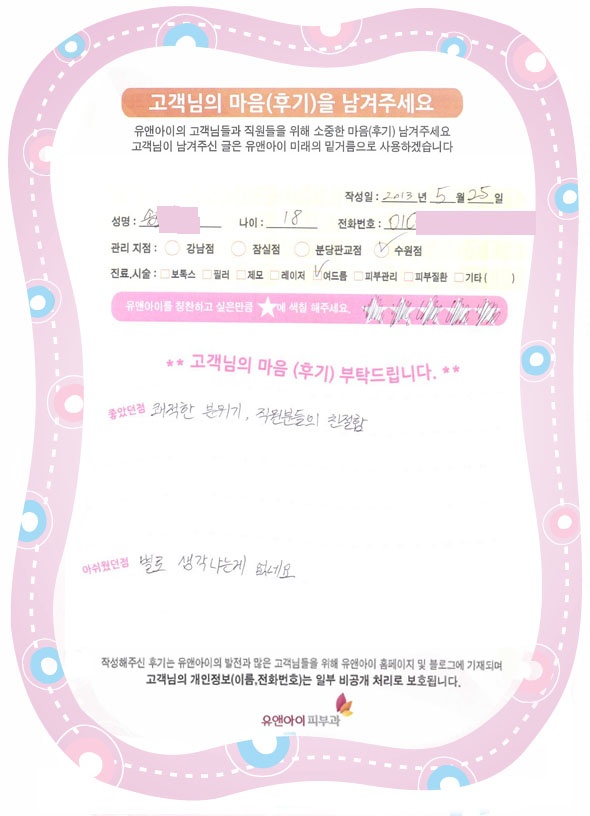 고객님의 마음(후기)을 남겨주세요
유앤아이의 고객님들과 직원들을 위해 소중한 마음(후기) 남겨주세요
고객님이 남겨주신 글은 유앤아이 미래의 밑거름으로 사용하겠습니다
작성일 : 2013 년 5 월 25 일
성명 : 나이 : 18 전화번호 : 010
관리 지점 : 강남점 잠실점 분당판교점 수원점
진료,시술 : 보톡스 필러 제모 레이저 여드름 피부관리 피부질환 기타 ( )
유앤아이를 칭찬하고 싶은만큼 ★에 색칠 해주세요.
** 고객님의 마음 (후기) 부탁드립니다. **
좋았던점 쾌적한 분위기, 직원분들의 친절함
아쉬웠던점 별로 생각나는게 없네요
작성해주신 후기는 유앤아이의 발전과 많은 고객님들을 위해 유앤아이 홈페이지 및 블로그에 기재되며
고객님의 개인정보(이름,전화번호)는 일부 비공개 처리로 보호됩니다.
유앤아이피부과